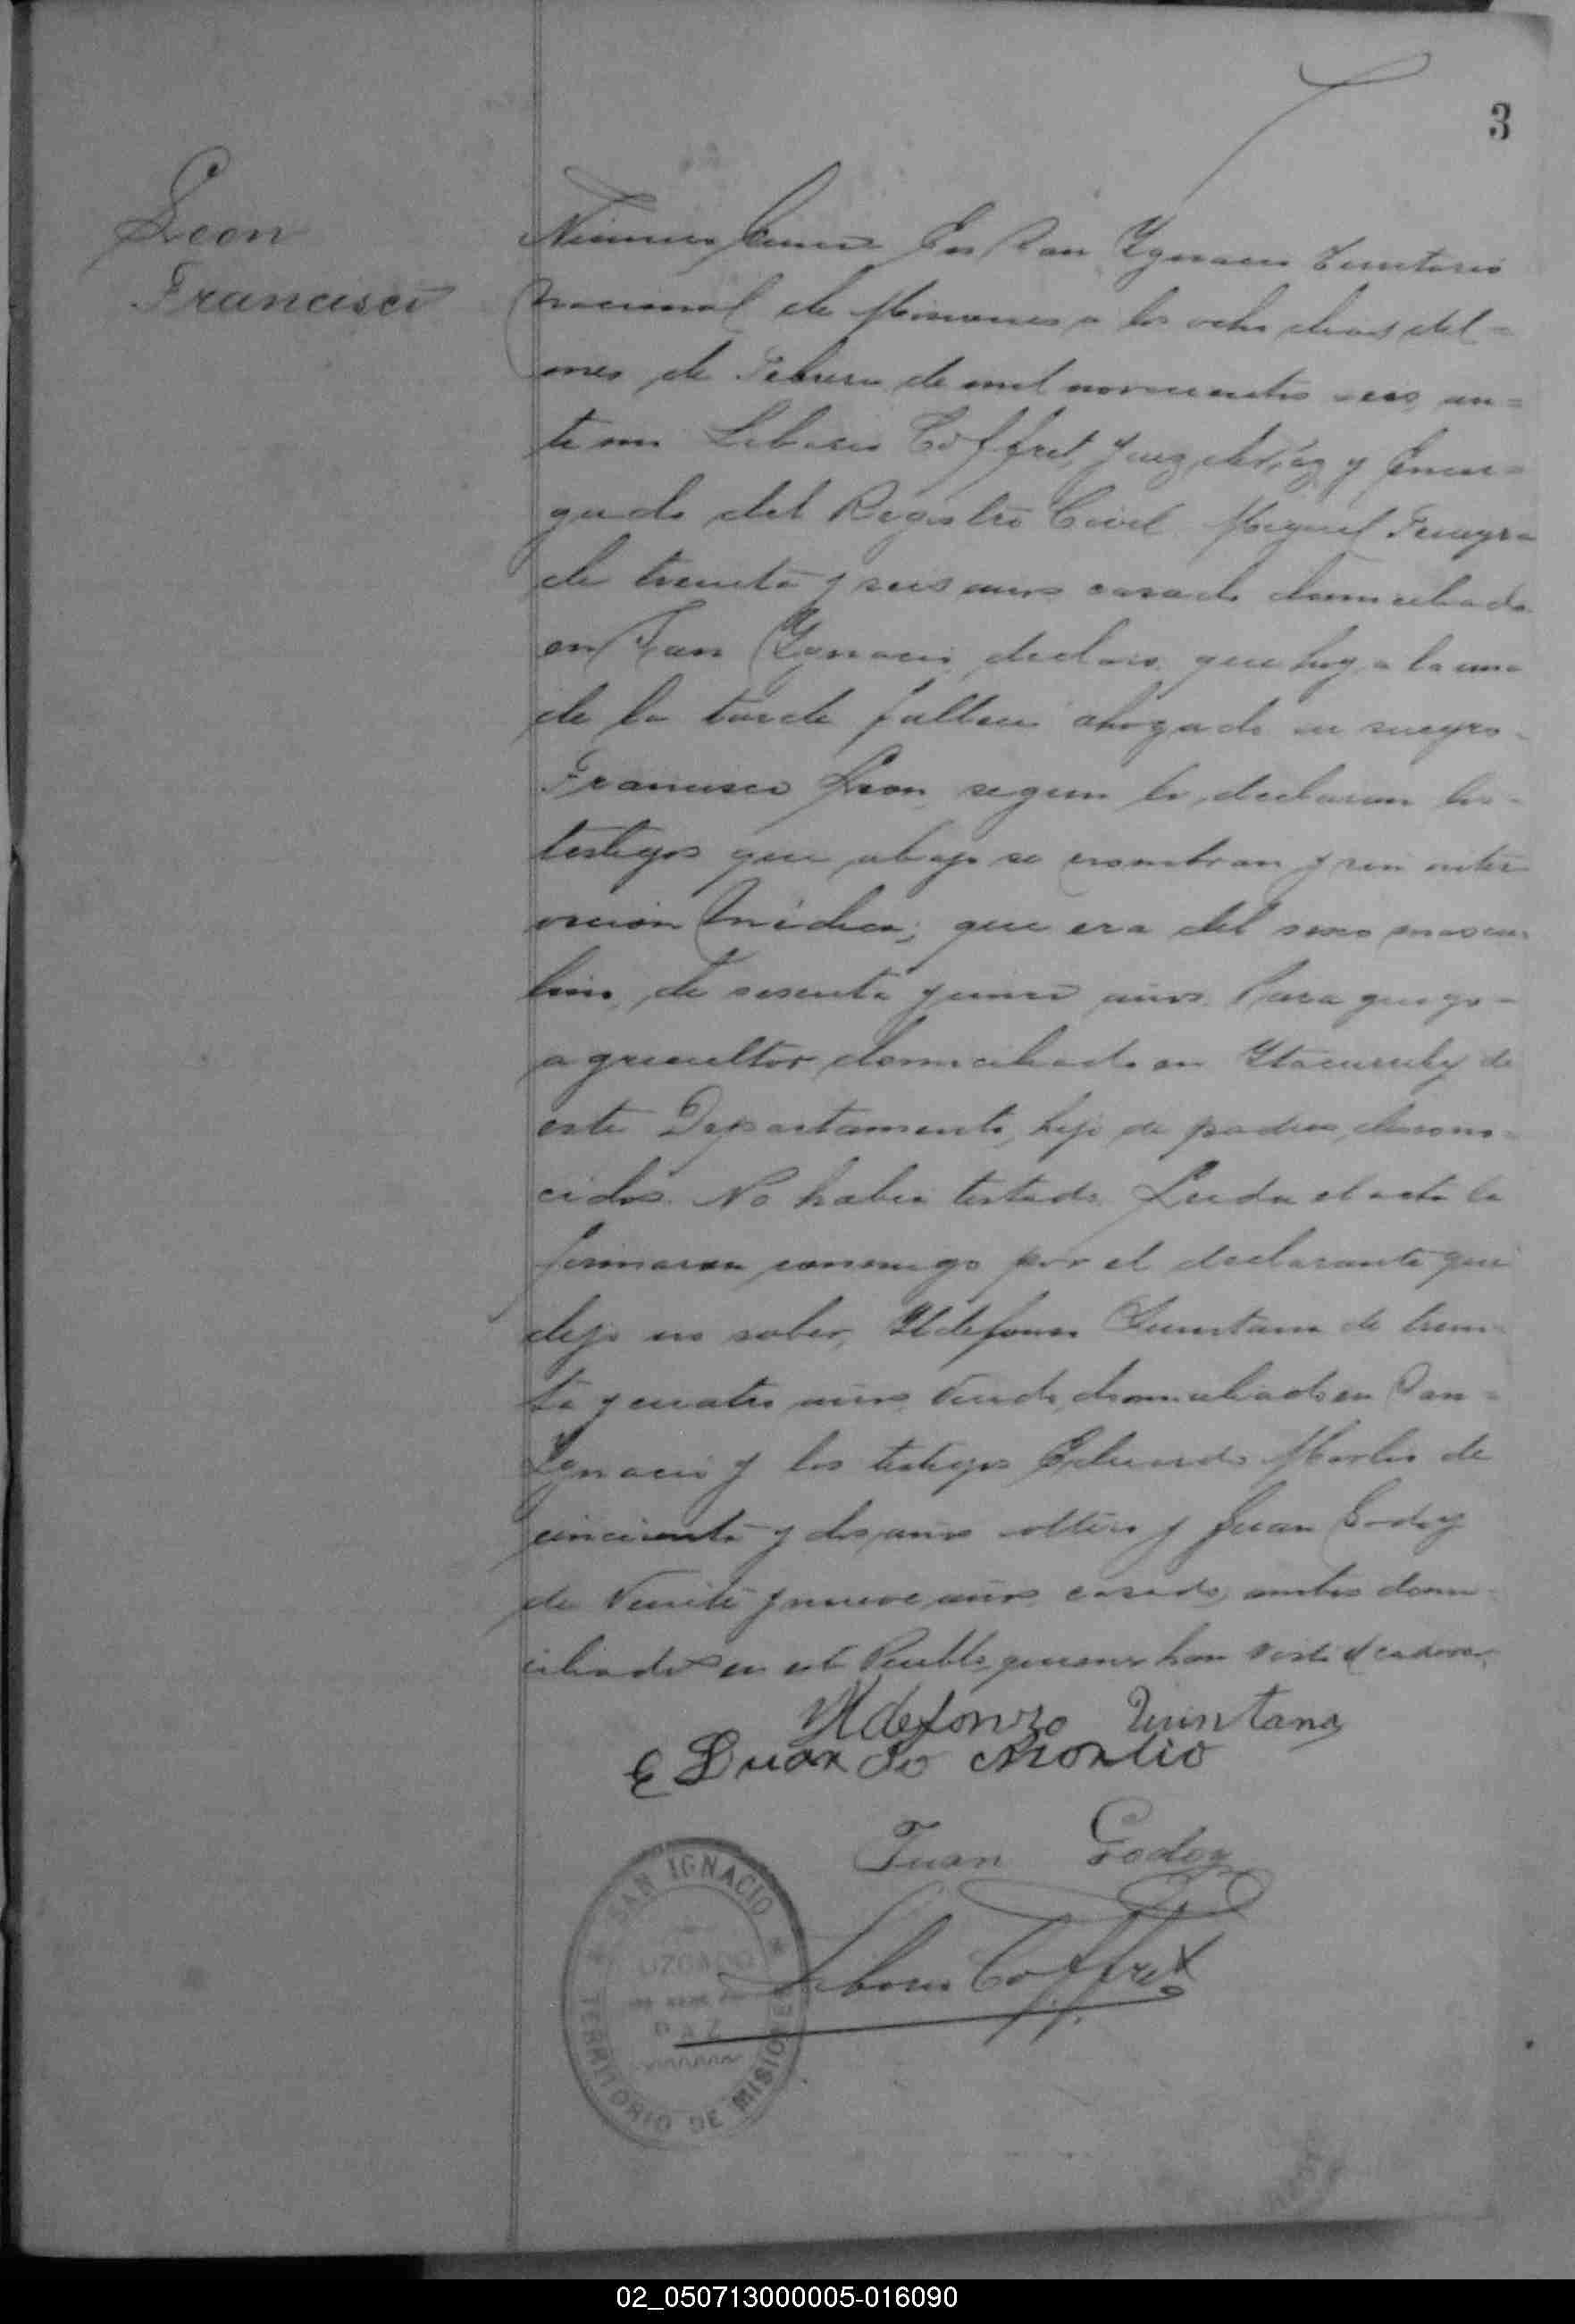 3
Leon
Francisco
Número Cinco En San Ygnacio Territorio
nacional de Misiones a los ocho dias del =
mes de Febrero de mil novecientos seis, an=
te mi Liborio Coffret, Juez de Paz y Encar=
gado del Registro Civil Miguel Ferreyra
de treinta y seis años casado domiciliado
en San Ygnacio, declaro que hoy a la una
de la tarde falleció ahogado su suegro
Francisco Leon, segun lo declaran los
testigos que abajo se nombran y sin inter
vencion médica; que era del sexo mascu
lino, de sesenta y cinco años Paraguayo
agricultor domiciliado en Ytacuruby de
este Departamento, hijo de padres descono
cidos. No habia testado. Leida el acta la
firmaron conmigo por el declarante que
dijo no saber, Yldefonso Quintana de trein
ta y cuatro años Viudo, domiciliado en San
Ygnacio y los testigos Eduardo Morlio de
cincuenta y dos años soltero y Juan Godoy
de Veinte y nueve años casado, ambos domi
ciliados en este Pueblo, quienes han visto el cadaver.
Yldefonzo Quintana
Eduardo Morlio
Juan Godoy
Liborio Coffret
SAN IGNACIO
JUZGADO
DE
PAZ
TERRITORIO DE MISIONES
02_050713000005-016090